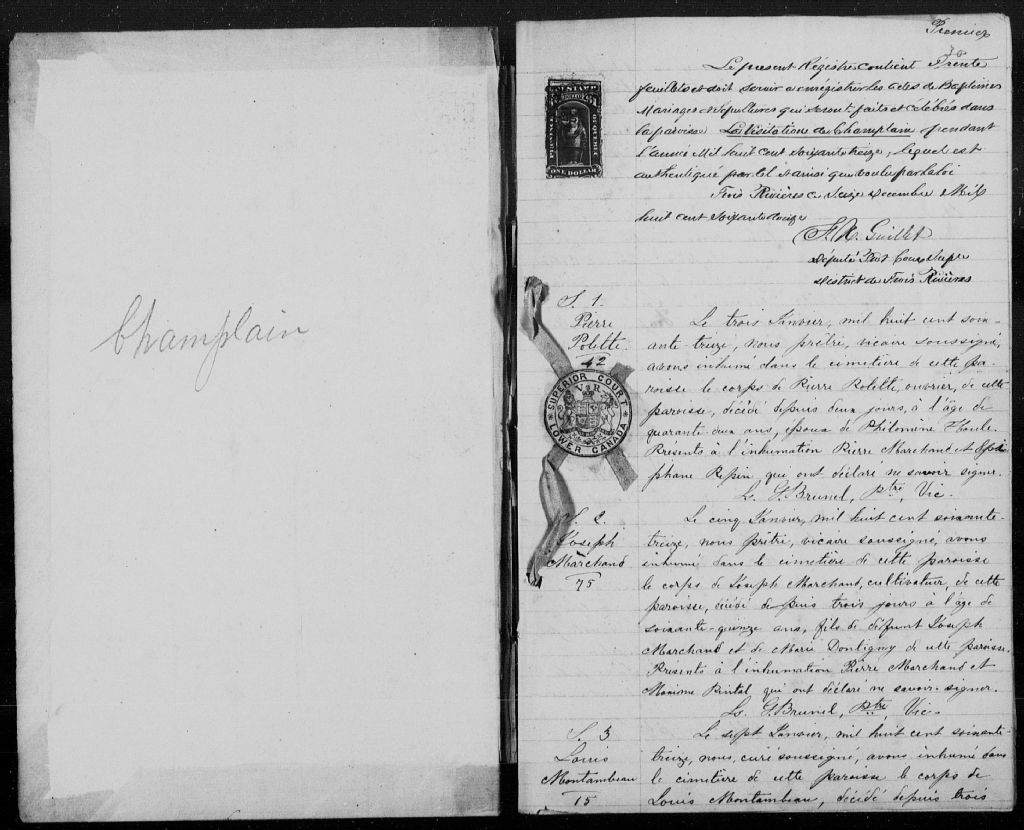 Champlain
Premier
30
Le présent Régistre contient Trente
feuillets et doit servir a enrégistrer les actes de Baptêmes
Mariages et Sepultures qui seront faits et célébrés dans
la paroisse La Visitation de Champlain pendant
l'année Mil huit cent Soixante treize, lequel est
authentiqué par tel et ainsi que voulu par la loi
Trois Rivières ce Seize Decembre Mil
huit cent Soixante douze
Guillet
Député Prot Cour Supr
District de Trois Rivières
STAMP
ONE DOLLAR
S. 1.
Pierre
Rolette.
42
SUPERIOR COURT
V R
LOWER CANADA
Le trois Janvier, mil huit cent soix-
ante-treize, nous prêtre, vicaire soussigné,
avons inhumé dans le cimetière de cette pa-
roisse le corps de Pierre Rolette, ouvrier, de cette
paroisse, décédé depuis deux jours, à l'âge de
quarante-deux ans, époux de Philomène Houle.
Présents à l'inhumation Pierre Marchand et
phane Pepin qui ont déclaré ne savoir signer.
L. G. Brunel, Ptre, Vic.
S. 2.
Joseph
Marchand
75
Le cinq Janvier, mil huit cent soixante-
treize, nous prêtre, vicaire soussigné, avons
inhumé dans le cimetière de cette paroisse
le corps de Joseph Marchand, cultivateur, de cette
paroisse, décédé depuis trois jours à l'âge de
soixante-quinze ans, fils de défunt Joseph
Marchand et de Marie Dontigny de cette paroisse.
Présents à l'inhumation Pierre Marchand et
Maxime Pintal qui ont déclaré ne savoir signer.
L. G. Brunel, Ptre, Vic.
S. 3
Louis
Montambeau
15
Le sept Janvier, mil huit cent soixante-
treize, nous, curé soussigné, avons inhumé dans
le cimetière de cette paroisse le corps de
Louis Montambeau, décédé depuis trois